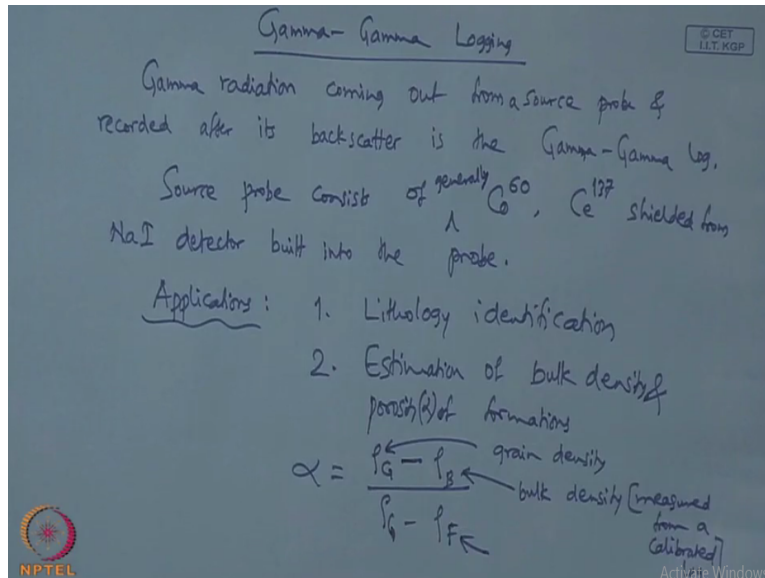 Gamma-Gamma Logging
© CET
I.I.T. KGP
Gamma radiation coming out from a source probe &
recorded after its backscatter is the Gamma-Gamma Log.
Source probe consist of generally Co⁶⁰, Ce¹³⁷ shielded from
NaI detector built into the probe.
Applications: 1. Lithology identification
2. Estimation of bulk density &
porosity(α) of formations
α = (ρG - ρB) / (ρG - ρF)
grain density
bulk density [measured
from a
calibrated]
NPTEL
Activate Windows